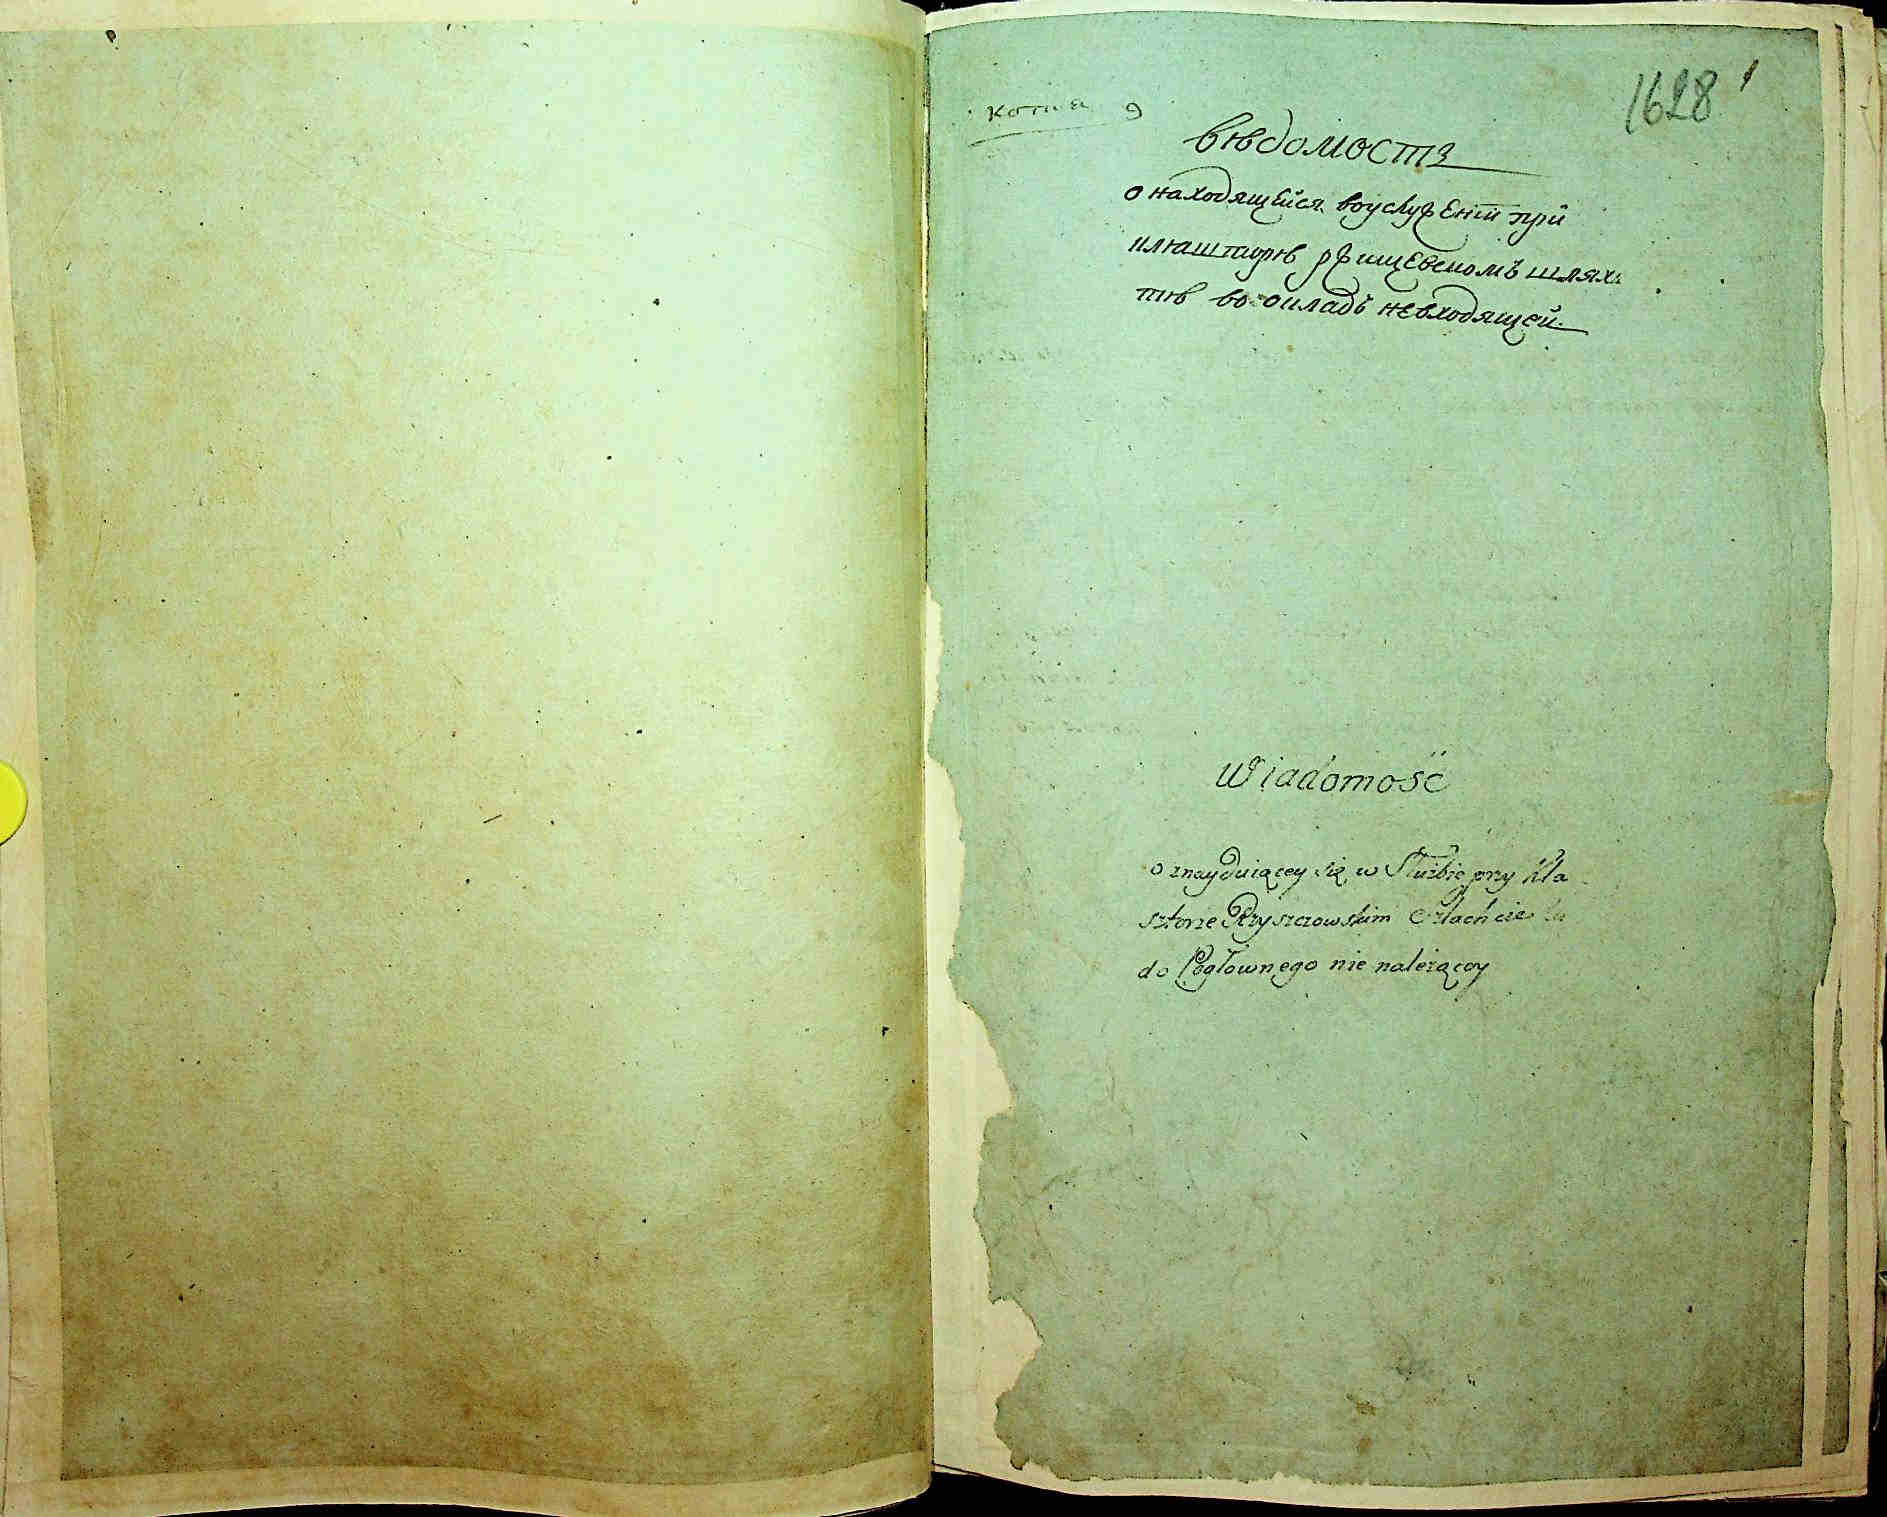 1628 1
Копия 9
Вѣдомость
о находящейся воуслуженіи при
кляшторѣ ржищевскомъ шлях-
тѣ во окладъ невходящей.
Wiadomość
o znayduiącey się w Służbie przy Kla
sztorze Rzyszczowskim Szlachcie
do Pogłownego nie należącey